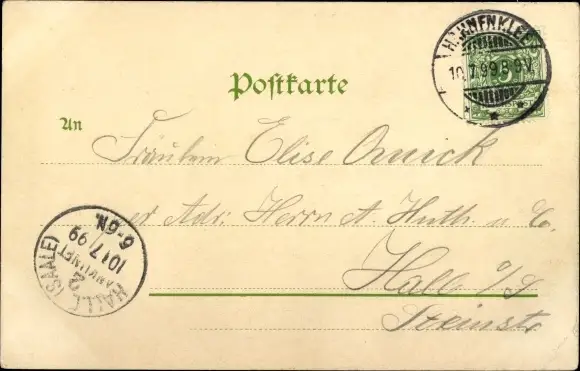 HAHNENKLEE
10.7.99.8-9V.
Postkarte
An
Fräulein Elise Quick
per Adr: Herrn A. Huth. u. C.
Halle a/S
Steinstr.
HALLE (SAALE)
2
ANKUNFT
10 7 99
6-6N.